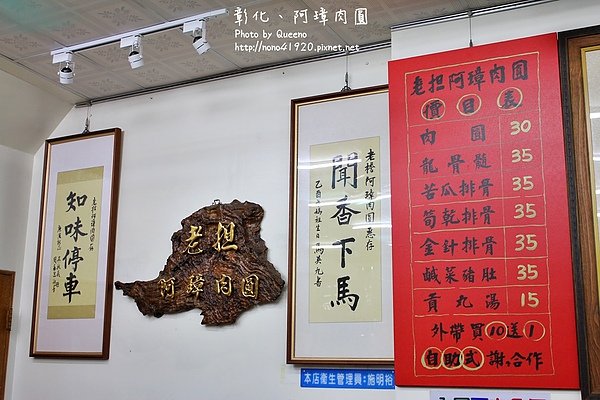 彰化、阿璋肉圓
Photo by Queeno
http://nono41920.pixnet.net
知味停車
老担
阿璋肉圓
老担阿璋肉圓惠存
聞香下馬
老担阿璋肉圓
價目表
肉圓 30
龍骨髓 35
苦瓜排骨 35
筍乾排骨 35
金針排骨 35
鹹菜豬肚 35
貢丸湯 15
外帶買10送1
自助式 謝謝合作
本店衛生管理員:施明裕